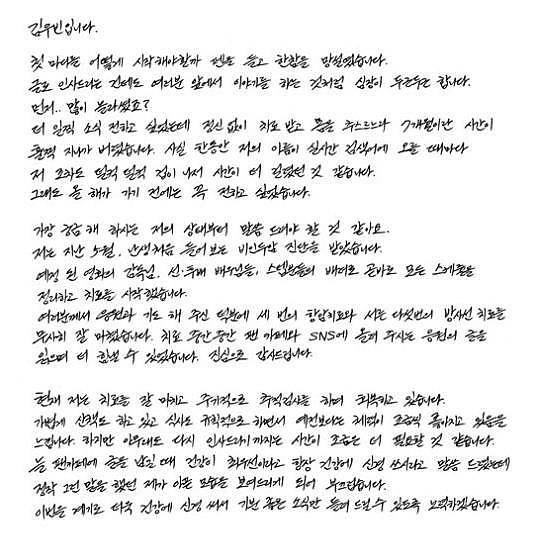 김우빈입니다.
첫 마디는 어떻게 시작해야할까 펜을 들고 한참을 망설였습니다.
글로 인사드리는 건데도 여러분 앞에서 이야기를 하는 것처럼 심장이 두근두근 합니다.
먼저.. 많이 놀라셨죠?
더 일찍 소식 전하고 싶었는데 정신 없이 치료 받고 몸을 추스르느라 7개월이란 시간이
훌쩍 지나가 버렸습니다. 사실 한동안 저의 이름이 실시간 검색어에 오를 때마다
저 조차도 덜컥 덜컥 겁이 나서 시간이 더 길었던 것 같습니다.
그래도 올 해가 가기 전에는 꼭 전하고 싶었습니다.
가장 궁금해 하시는 저의 상태부터 말씀 드려야 할 것 같아요.
저는 지난 5월, 난생처음 들어 보는 비인두암 진단을 받았습니다.
예정 된 영화의 감독님, 선·후배 배우님들, 스텝분들의 배려로 곧바로 모든 스케줄을
정리하고 치료를 시작했습니다.
여러분께서 응원과 기도 해 주신 덕분에 세 번의 항암치료와 서른 다섯번의 방사선 치료를
무사히 잘 마쳤습니다. 치료 중간중간 팬 카페와 SNS에 올려 주시는 응원의 글을
읽으며 더 힘낼 수 있었습니다. 진심으로 감사드립니다.
현재 저는 치료를 잘 마치고 주기적으로 추적검사를 하며 회복하고 있습니다.
가볍게 산책도 하고 있고 식사도 규칙적으로 하면서 예전보다는 체력이 조금씩 좋아지고 있음을
느낍니다. 하지만 아무래도 다시 인사드리기까지는 시간이 조금은 더 필요할 것 같습니다.
늘 팬카페에 글을 남길 때 건강이 최우선이라고 항상 건강에 신경 쓰시라고 말씀 드렸는데
정작 그런 말을 했던 제가 아픈 모습을 보여드리게 되어 부끄럽습니다.
이번을 계기로 더욱 건강에 신경 써서 기쁘고 좋은 소식만 들려 드릴 수 있도록 노력하겠습니다.